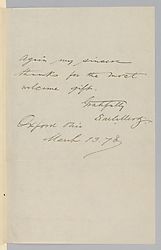 Again my sincere
thanks for the most
welcome gift.
Gratefully
Oxford Ohio
March 13. 78